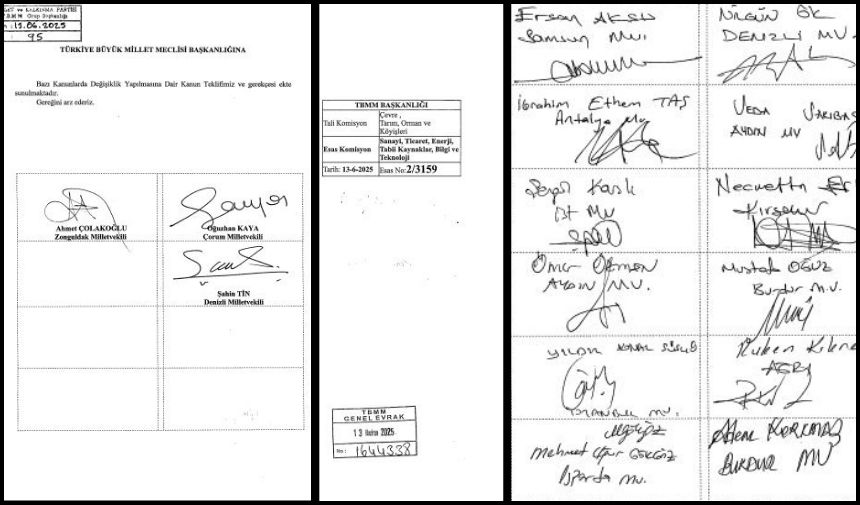 VE KALKINMA PARTİSİ
T.B.M.M Grup Başkanlığı
13.06.2025
95
TÜRKİYE BÜYÜK MİLLET MECLİSİ BAŞKANLIĞINA
Bazı Kanunlarda Değişiklik Yapılmasına Dair Kanun Teklifimiz ve gerekçesi ekte
sunulmaktadır.
Gereğini arz ederiz.
Ahmet ÇOLAKOĞLU
Zonguldak Milletvekili
Oğuzhan KAYA
Çorum Milletvekili
Şahin TİN
Denizli Milletvekili
TBMM BAŞKANLIĞI
Tali Komisyon
Çevre ,
Tarım, Orman ve
Köyişleri
Esas Komisyon
Sanayi, Ticaret, Enerji,
Tabii Kaynaklar, Bilgi ve
Teknoloji
Tarih: 13-6-2025 Esas No: 2/3159
TBMM
GENEL EVRAK
13 Haziran 2025
No: 1644338
Ersan AKSU
Samsun MV.
NİLGÜN ÖK
DENİZLİ MV.
İbrahim Ethem TAŞ
Antalya MV
SEDA SARIBAŞ
AYDIN MV
Kaslı
İst MV
Necmettin Er
Kırşehir
Ömer ÖZMEN
AYDIN MV.
Mustafa OĞUZ
Burdur M.V.
YILDIZ KONAL SÜSLÜ
İSTANBUL MV.
Ruken Kılerci
AĞRI
Mehmet Uğur GÖKGÖZ
Isparta MV.
Adem KORKMAZ
BURDUR MV